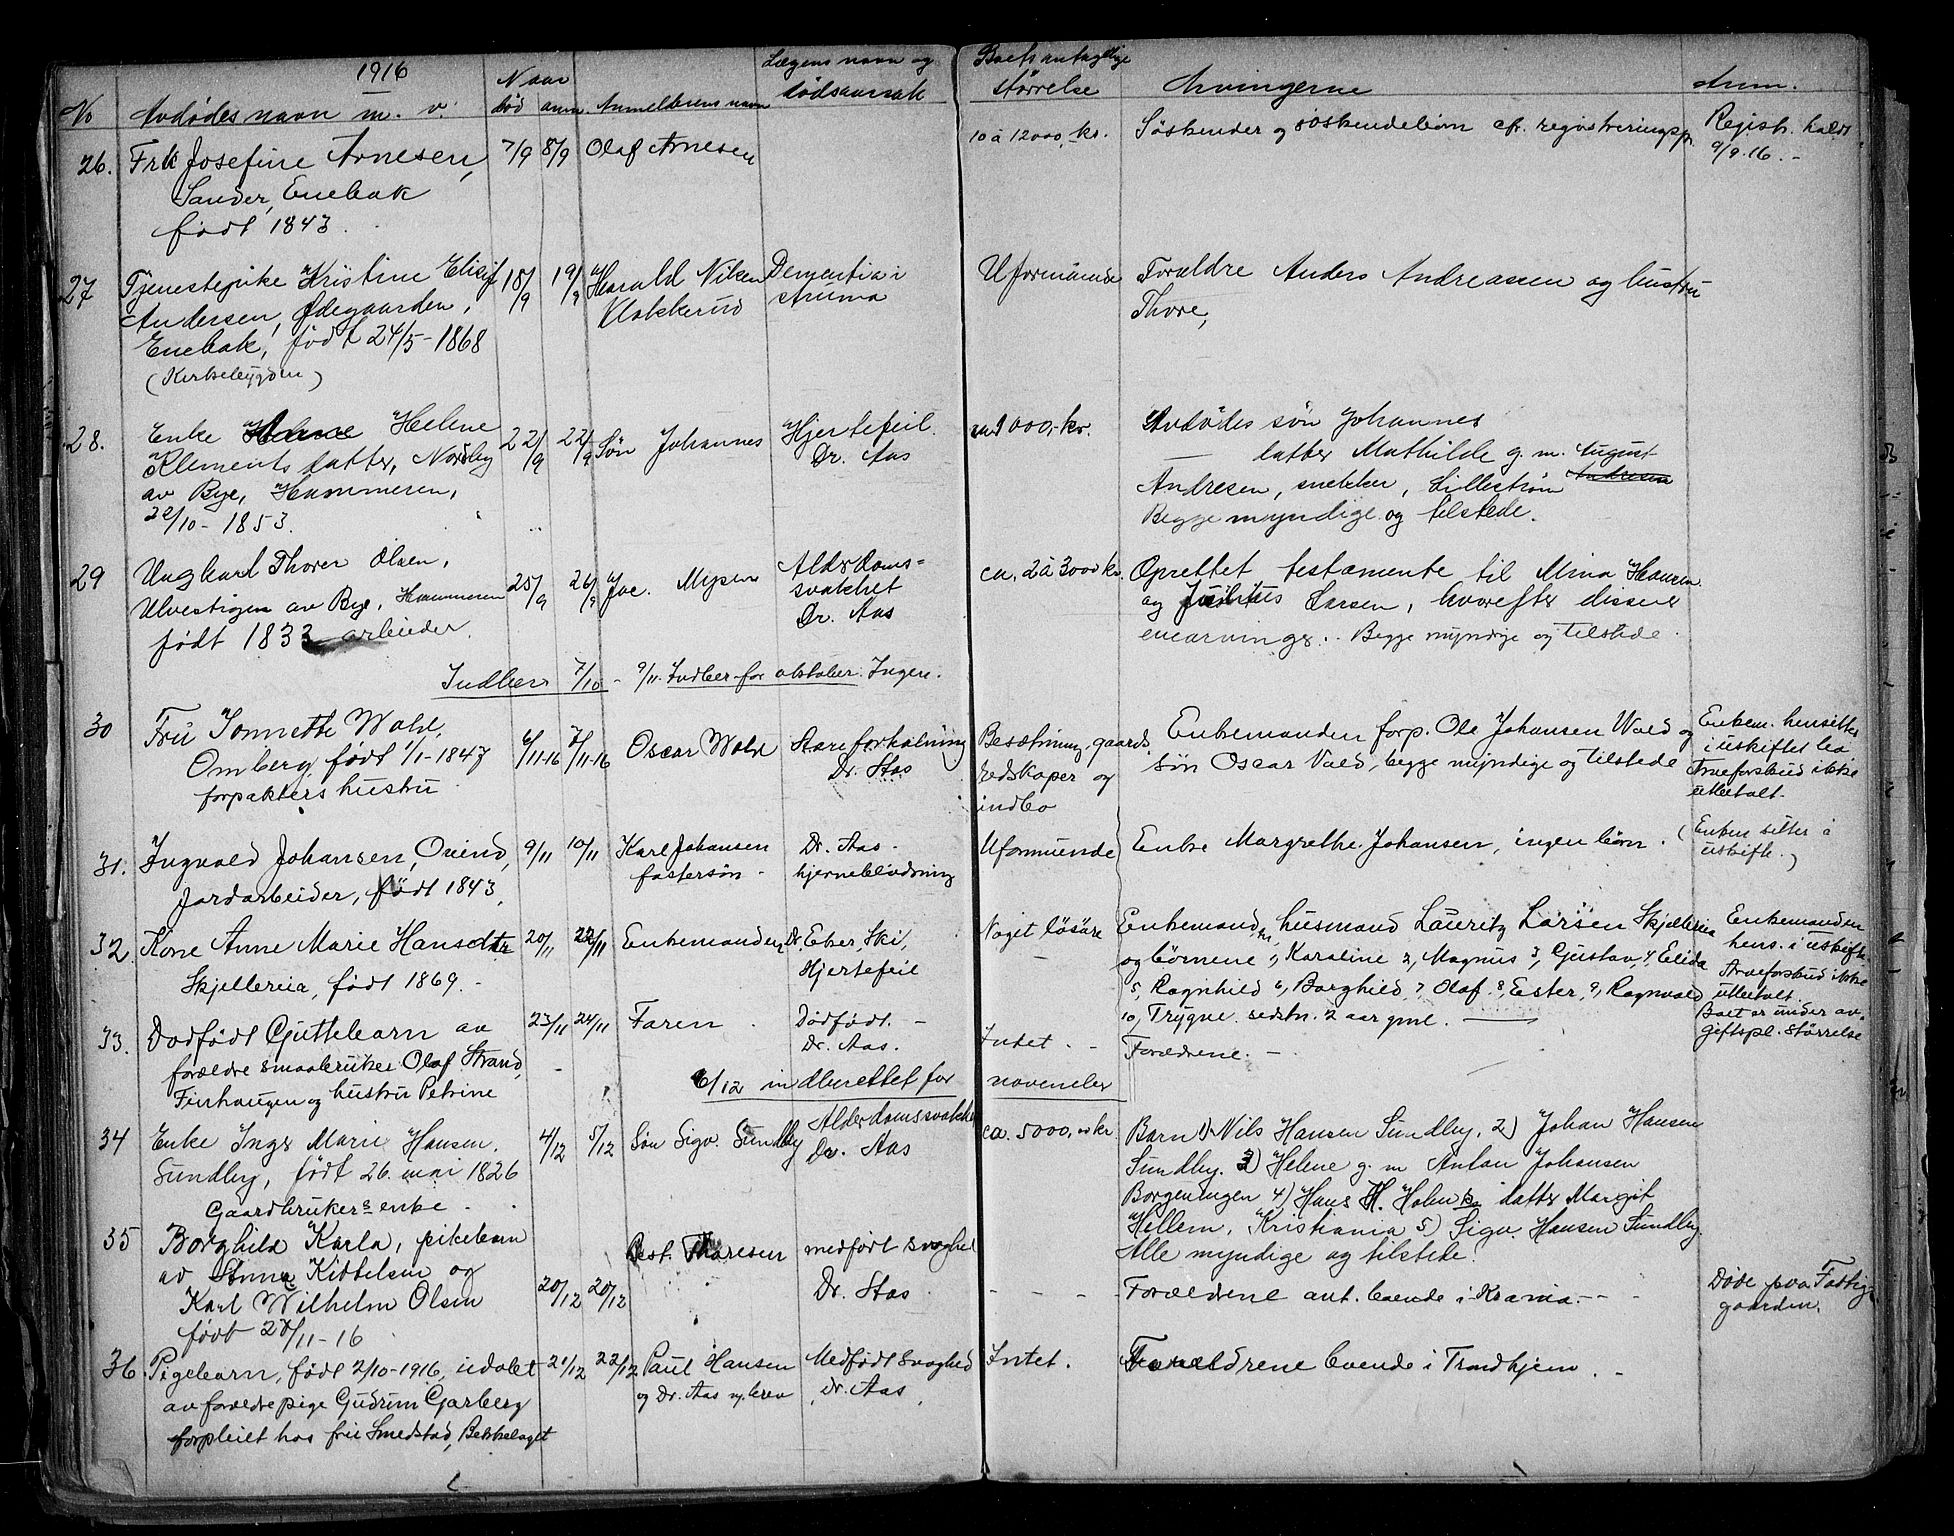 1916
No Avdødes navn m. v.
Naar
død anm.
Anmelderens navn
Lægens navn og
dødsaarsak
Boets antagelige
størrelse
Arvingerne
Anm.
26. Frk Josefine Arnesen,
Sander, Enebak
født 1843.
7/9 8/9 Olaf Arnesen
10 à 12000,- kr.
Søskender og søskendebørn cfr. registreringspr.
Registr. holdt
9/9.16. -
27 Tjenestepike Kristine Elisif
Andersen, Ødegaarden,
Enebak, født 24/5-1868
(Kirkebygden)
18/9 19/9 Harald Nilsen
Klokkerud
Dementia i
struma
Uformuende
Forældre Anders Andreassen og hustru
Thore,
28. Enke Helene
Klements datter, Nordby
av Bye, Hammeren,
/10-1853.
22/9 22/9 Søn Johannes
Hjertefeil.
Dr. Aas
1000,- kr.
Avdødes søn Johannes
— datter Mathilde g. m. August
Andresen, snekker, Lillestrøm Andresen
Begge myndige og tilstede.
29 Ungkarl Thorer Olsen,
Ulvestigen av Bye, Hammeren
født 1833 arbeider.
25/9 26/9 Joe. Mysen
Alderdoms-
svakhet
Dr. Aas
ca. 2 à 3000 kr.
Oprettet testamente til Mina Hansen
og Larsen, hvorefter disse er
enearvinger. Begge myndige og tilstede.
Indber 7/10 - 9/11. Indber for oktober. Ingen.
30 Fru Tonnette Wold,
Omberg, født 1/1-1847
forpakters hustru
6/11-16 7/11-16 Oscar Wold
Aareforkalkning
Dr. Aas
Besætning, gaards
redskaper og
indbo
Enkemanden forp. Ole Johansen Wold og
søn Oscar Vold, begge myndige og tilstede
Enkem. hensitter
i uskiftet bo
Arveforskud ikke
utbetalt.
31. Ingvald Johansen, Opind,
Jordarbeider, født 1843.
9/11 10/11 Karl Johansen
fastersøn -
Dr. Aas -
hjerneblødning
Uformuende
Enke Margrethe Johansen, ingen børn.
(Enken sitter i
uskifte.)
32. Kone Anne Marie Hansdtr
Skjellereia, født 1869. -
20/11 22/11 Enkemanden
Dr. Eber, Ski,
Hjertefeil
Noget løsøre
-
Enkemand, husmand Lauritz Larsen Skjellereia
og børnene 1, Karoline 2, Magnus 3, Gustav, 4, Elida
5, Ragnhild 6, Borghild, 7 Olaf. 8, Ester, 9, Ragnvald
10, Trygve. sidstn. 2 aar gml. ——
Enkemanden
hens. i uskifte
Arveforskud ikke
utbetalt.
Boet er under av-
giftspl. størrelse
33. Dødfødt Guttebarn av
forældre smaabruker Olaf Strand,
Finhaugen og hustru Petrine
23/11 24/11 Faren.
Dødfødt. -
Dr. Aas.
Intet. -
Forældrene. -
6/12 indberettet for november
34 Enke Inger Marie Hansen.
Sundby, født 26. mai 1826
Gaardbrukers enke.
4/12 5/12 Søn Sigv. Sundby
Alderdomssvakhet
Dr. Aas
ca. 5000,00 kr
Barn 1) Nils Hansen Sundby, 2) Johan Hansen
Sundby. 3) Helene g. m Anton Johansen
Borgeningen 4) Hans H. Holen datter Margit
Hellem, Kristiania 5) Sigv. Hansen Sundby.
Alle myndige og tilstede.
35 Borghild Karla, pikebarn
av Anna Kittelsen og
Karl Wilhelm Olsen
født 27/11-16
20/12 20/12
Best. Thoresen
medfødt svaghed
Dr. Aas
- - -
Forældrene ant. boende i Krania. - -
Døde paa Fattig-
gaarden.
36. Pigebarn, født 2/10-1916, udøbt
av forældre pige Gudrun Garberg
forpleiet hos fru Smedstad, Bekkelaget
21/12 22/12 Paul Hansen
og Dr. Aas brev
Medfødt Svaghed
Dr. Aas
Intet.
Forældrene boende i Trondhjem. -